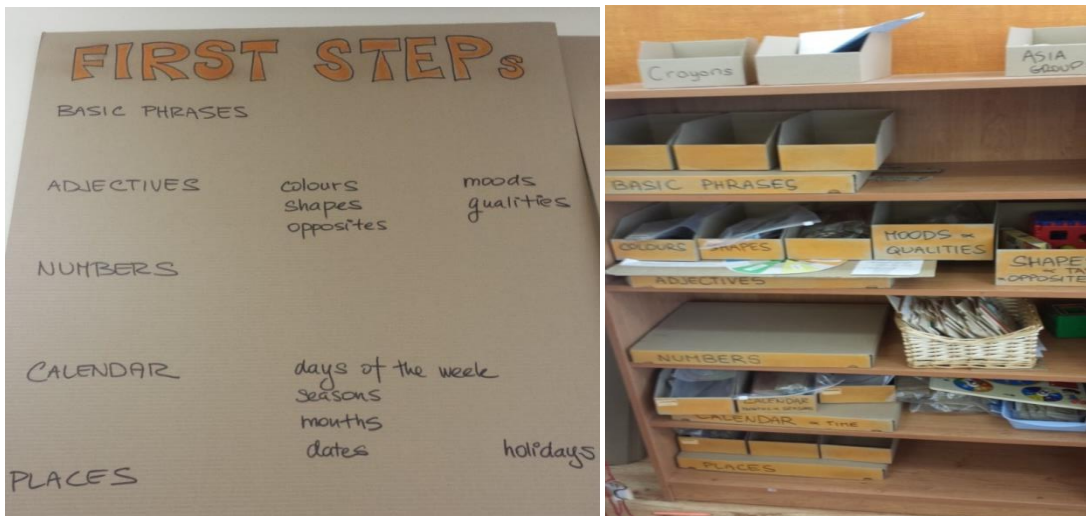 FIRST STEPs
BASIC PHRASES
ADJECTIVES colours moods
shapes qualities
opposites
NUMBERS
CALENDAR days of the week
seasons
months
dates holidays
PLACES
Crayons
ASIA
GROUP
BASIC PHRASES
COLOURS
SHAPES
MOODS
QUALITIES
SHAPE
OPPOSITE
ADJECTIVES
NUMBERS
CALENDAR
CALENDAR TIME
PLACES